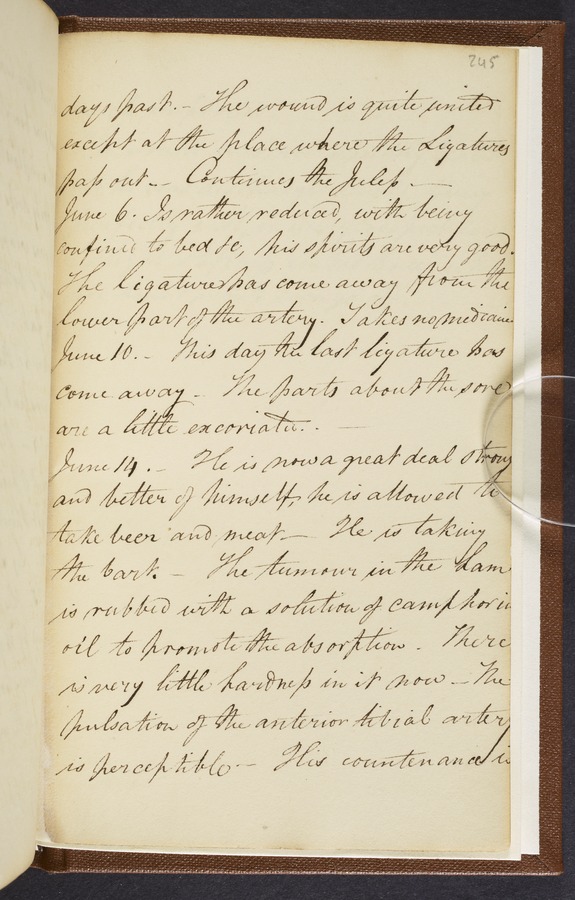 245
days past. - The wound is quite united
except at the place where the Ligatures
pass out. - Continues the Julep -
June 6. Is rather reduced, with being
confined to bed &c, his spirits are very good.
The ligature has come away from the
lower part of the artery. Takes no medicine
June 10. - This day the last ligature has
come away - The parts about the sore
are a little excoriate. . -
June 14. - He is now a great deal strong
and better of himself, he is allowed to
take beer and meat - He is taking
the bark. - The tumour in the ham
is rubbed with a solution of camphor in
oil to promote the absorption. There
is very little hardness in it now - The
pulsation of the anterior tibial artery
is perceptible - His countenance is